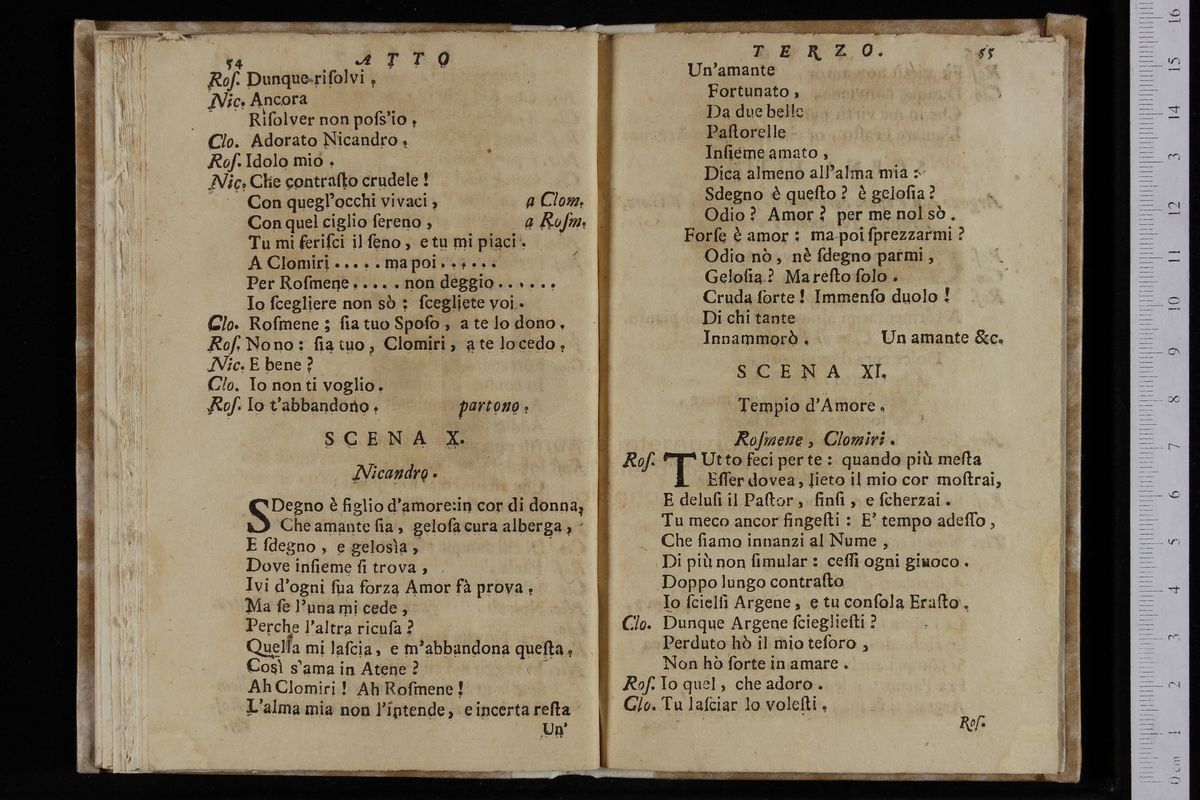 54 ATTO
Roſ. Dunque riſolvi.
Nic. Ancora
Riſolver non poſs'io.
Clo. Adorato Nicandro.
Roſ. Idolo mio.
Nic. Che contraſto crudele!
Con quegl'occhi vivaci, a Clom.
Con quel ciglio ſereno, a Roſm.
Tu mi feriſci il ſeno, e tu mi piaci.
A Clomiri ..... ma poi ......
Per Roſmene ..... non deggio ......
Io ſcegliere non sò: ſcegliete voi.
Clo. Roſmene; ſia tuo Spoſo, a te lo dono.
Roſ. No no: ſia tuo, Clomiri, a te lo cedo.
Nic. E bene?
Clo. Io non ti voglio.
Roſ. Io t'abbandono. partono.
SCENA X.
Nicandro.
SDegno è figlio d'amore: in cor di donna,
Che amante ſia, geloſa cura alberga,
E ſdegno, e gelosìa,
Dove inſieme ſi trova,
Ivi d'ogni ſua forza Amor fà prova.
Ma ſe l'una mi cede,
Perche l'altra ricuſa?
Quella mi laſcia, e m'abbandona queſta.
Così s'ama in Atene?
Ah Clomiri! Ah Roſmene!
L'alma mia non l'intende, e incerta reſta
Un'
TERZO. 55
Un'amante
Fortunato,
Da due belle
Paſtorelle
Inſieme amato,
Dica almeno all'alma mia:
Sdegno è queſto? è geloſia?
Odio? Amor? per me nol sò.
Forſe è amor: ma poi ſprezzarmi?
Odio nò, nè ſdegno parmi,
Geloſia? Ma reſto ſolo.
Cruda ſorte! Immenſo duolo!
Di chi tante
Innammorò. Un amante &c.
SCENA XI.
Tempio d'Amore.
Roſmene, Clomiri.
Roſ. TUtto feci per te: quando più meſta
Eſſer dovea, lieto il mio cor moſtrai,
E deluſi il Paſtor, finſi, e ſcherzai.
Tu meco ancor fingeſti: E' tempo adeſſo,
Che ſiamo innanzi al Nume,
Di più non ſimular: ceſſi ogni giuoco.
Doppo lungo contraſto
Io ſcielſi Argene, e tu conſola Eraſto.
Clo. Dunque Argene ſcieglieſti?
Perduto hò il mio teſoro,
Non hò ſorte in amare.
Roſ. Io quel, che adoro.
Clo. Tu laſciar lo voleſti.
Roſ.
0 cm 1 2 3 4 5 6 7 8 9 10 11 12 13 14 15 16